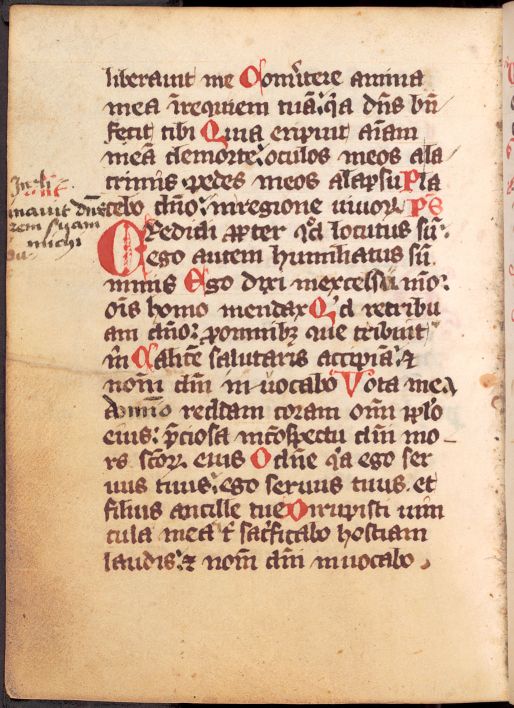 liberauit me Conu̅tere anima
mea i̅requiem tua̅: q̅a dn̅s bn̅
fecit tibi Quia eripuit ai̅am
mea̅ demorte: oculos meos ala
crimis: pedes meos alapsu Pla
cebo dn̅o: inregione uiuoꝝ. ps
Credidi ꝓpter qd̅ locutus su̅:
ego autem humiliatus su̅
nimis Ego dixi inexcelsu mo̅:
oi̅s homo mendax Qd̅ retribu
am dn̅o: ꝓomnibꝫ que tribuit
m̅ Calice̅ salutaris accipia̅: ⁊
nom̅ dn̅i inuocabo Vota mea
domino reddam coram omi̅ ꝓplo
eius: p̅ciosa inco̅spectu dn̅i mo
rs sco̅ꝝ eius O dn̅e q̅a ego ser
uus tuus: ego seruus tuus. et
filius ancille tue Dirupisti uin
cula mea t̅ sac̅ficabo hostiam
laudis: ⁊ nom̅ dn̅i inuocabo.
Incli
nauit dn̅s
rem suam
michi